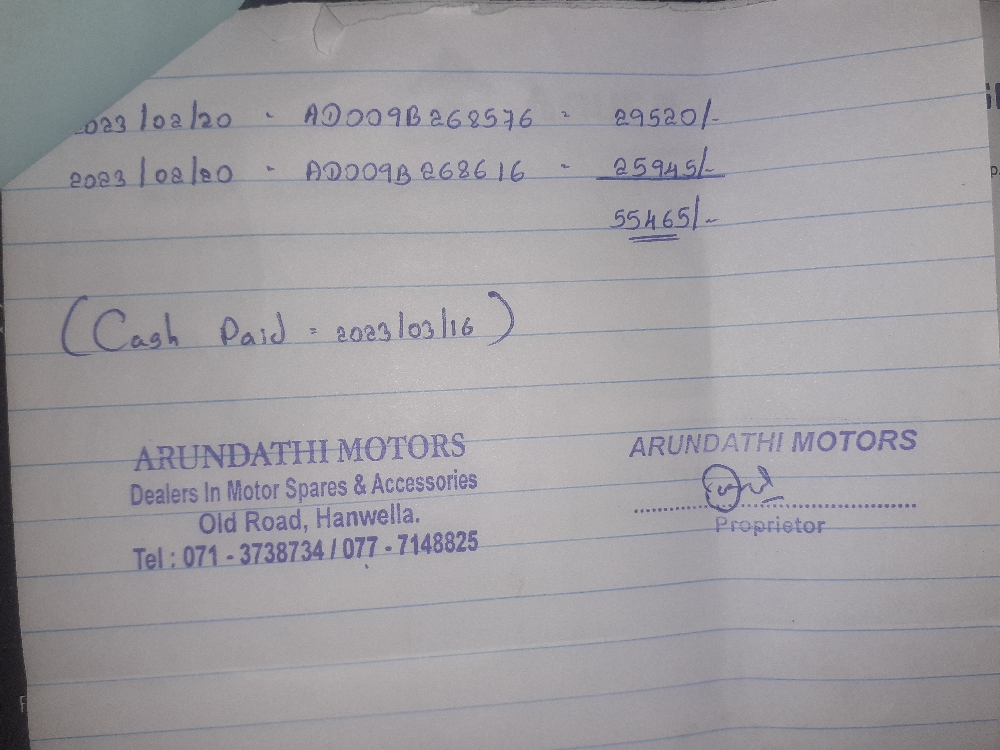 2023/02/20 - AD009B268576 - 29520/-
2023/02/20 - AD009B268616 - 25945/-
55465/-
(Cash Paid = 2023/03/16)
ARUNDATHI MOTORS
Dealers In Motor Spares & Accessories
Old Road, Hanwella.
Tel : 071 - 3738734 / 077 - 7148825
ARUNDATHI MOTORS
Proprietor